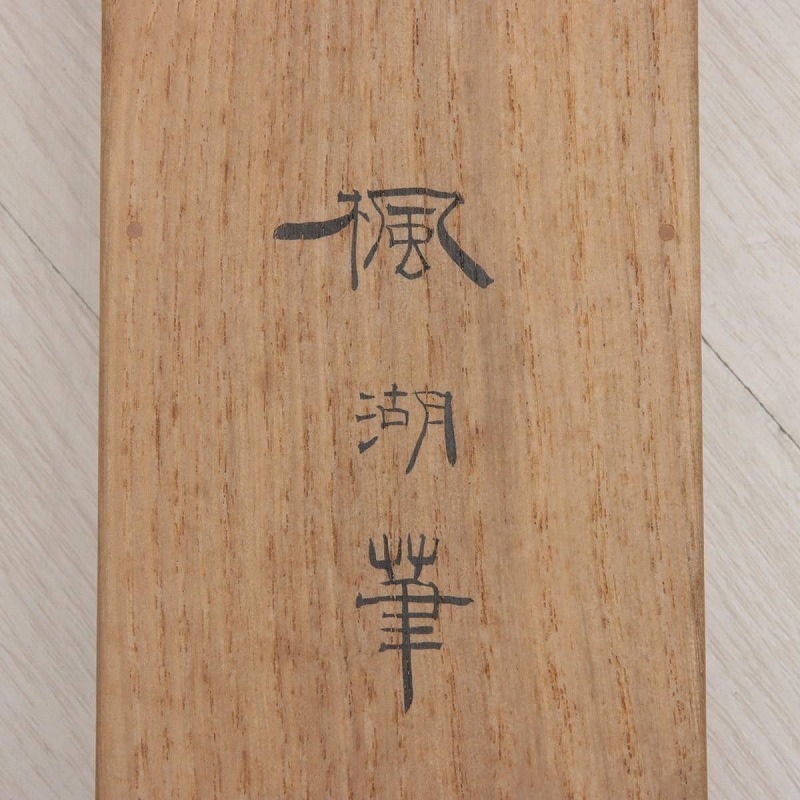 楓湖筆